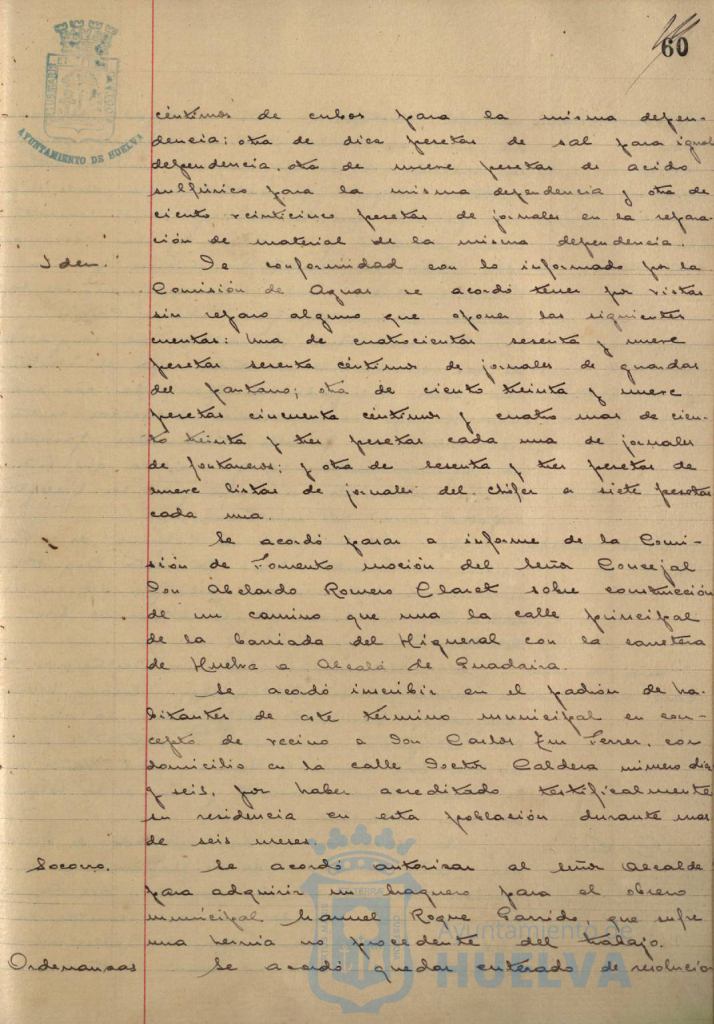 60
AYUNTAMIENTO DE HUELVA
céntimos de cubos para la misma depen-
dencia; otra de diez pesetas de sal para igual
dependencia, otra de nueve pesetas de acido
sulfúrico para la misma dependencia y otra de
ciento veinticinco pesetas de jornales en la repara-
ción de material de la misma dependencia.
Idem. De conformidad con lo informado por la
Comisión de Aguas se acordó tener por vistas
sin reparo alguno que oponer las siguientes
cuentas: una de cuatrocientas sesenta y nueve
pesetas sesenta céntimos de jornales de guardas
del pantano; otra de ciento treinta y nueve
pesetas cincuenta céntimos y cuatro mas de cien-
to treinta y tres pesetas cada una de jornales
de fontaneros; y otra de sesenta y tres pesetas de
nueve listas de jornales del chófer a siete pesetas
cada una.
Se acordó pasar a informe de la Comi-
sión de Fomento moción del Señor Concejal
Don Abelardo Romero Claret sobre construcción
de un camino que una la calle principal
de la barriada del Higueral con la carretera
de Huelva a Alcalá de Guadaira.
Se acordó inscribir en el padrón de ha-
bitantes de este termino municipal en con-
cepto de vecino a Don Carlos Ferrer, con
domicilio en la calle Doctor Caldera número diez
y seis, por haber acreditado testificalmente
su residencia en esta población durante mas
de seis meses.
Socorro. Se acordó autorizar al Señor Alcalde
para adquirir un braguero para el obrero
municipal, Manuel Roque Garrido, que sufre
una hernia no procedente del trabajo.
Ordenanzas Se acordó quedar enterado de resolución
Ayuntamiento de
HUELVA